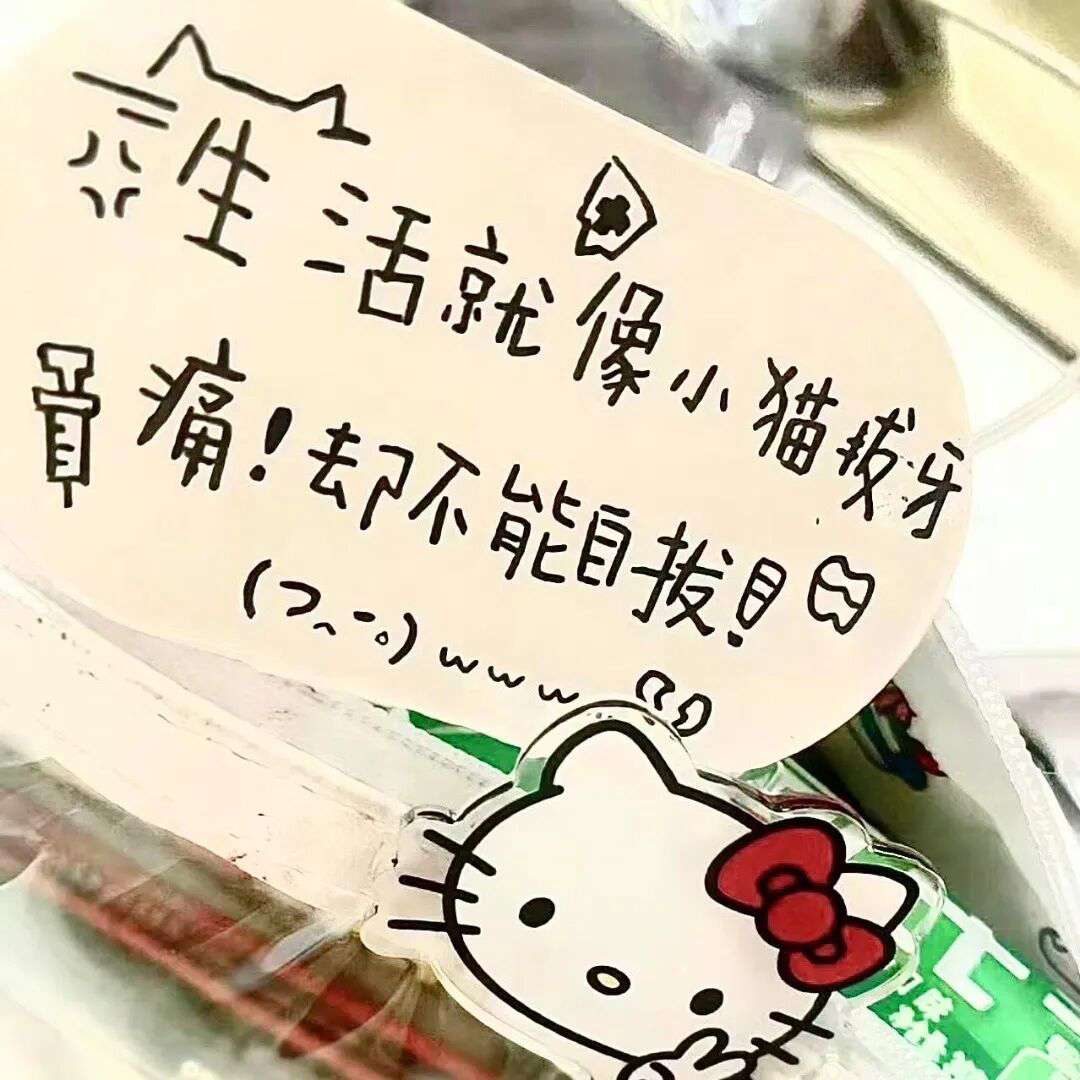 生活就像小猫拔牙
痛!却不能自拔!
(つ、-。)www